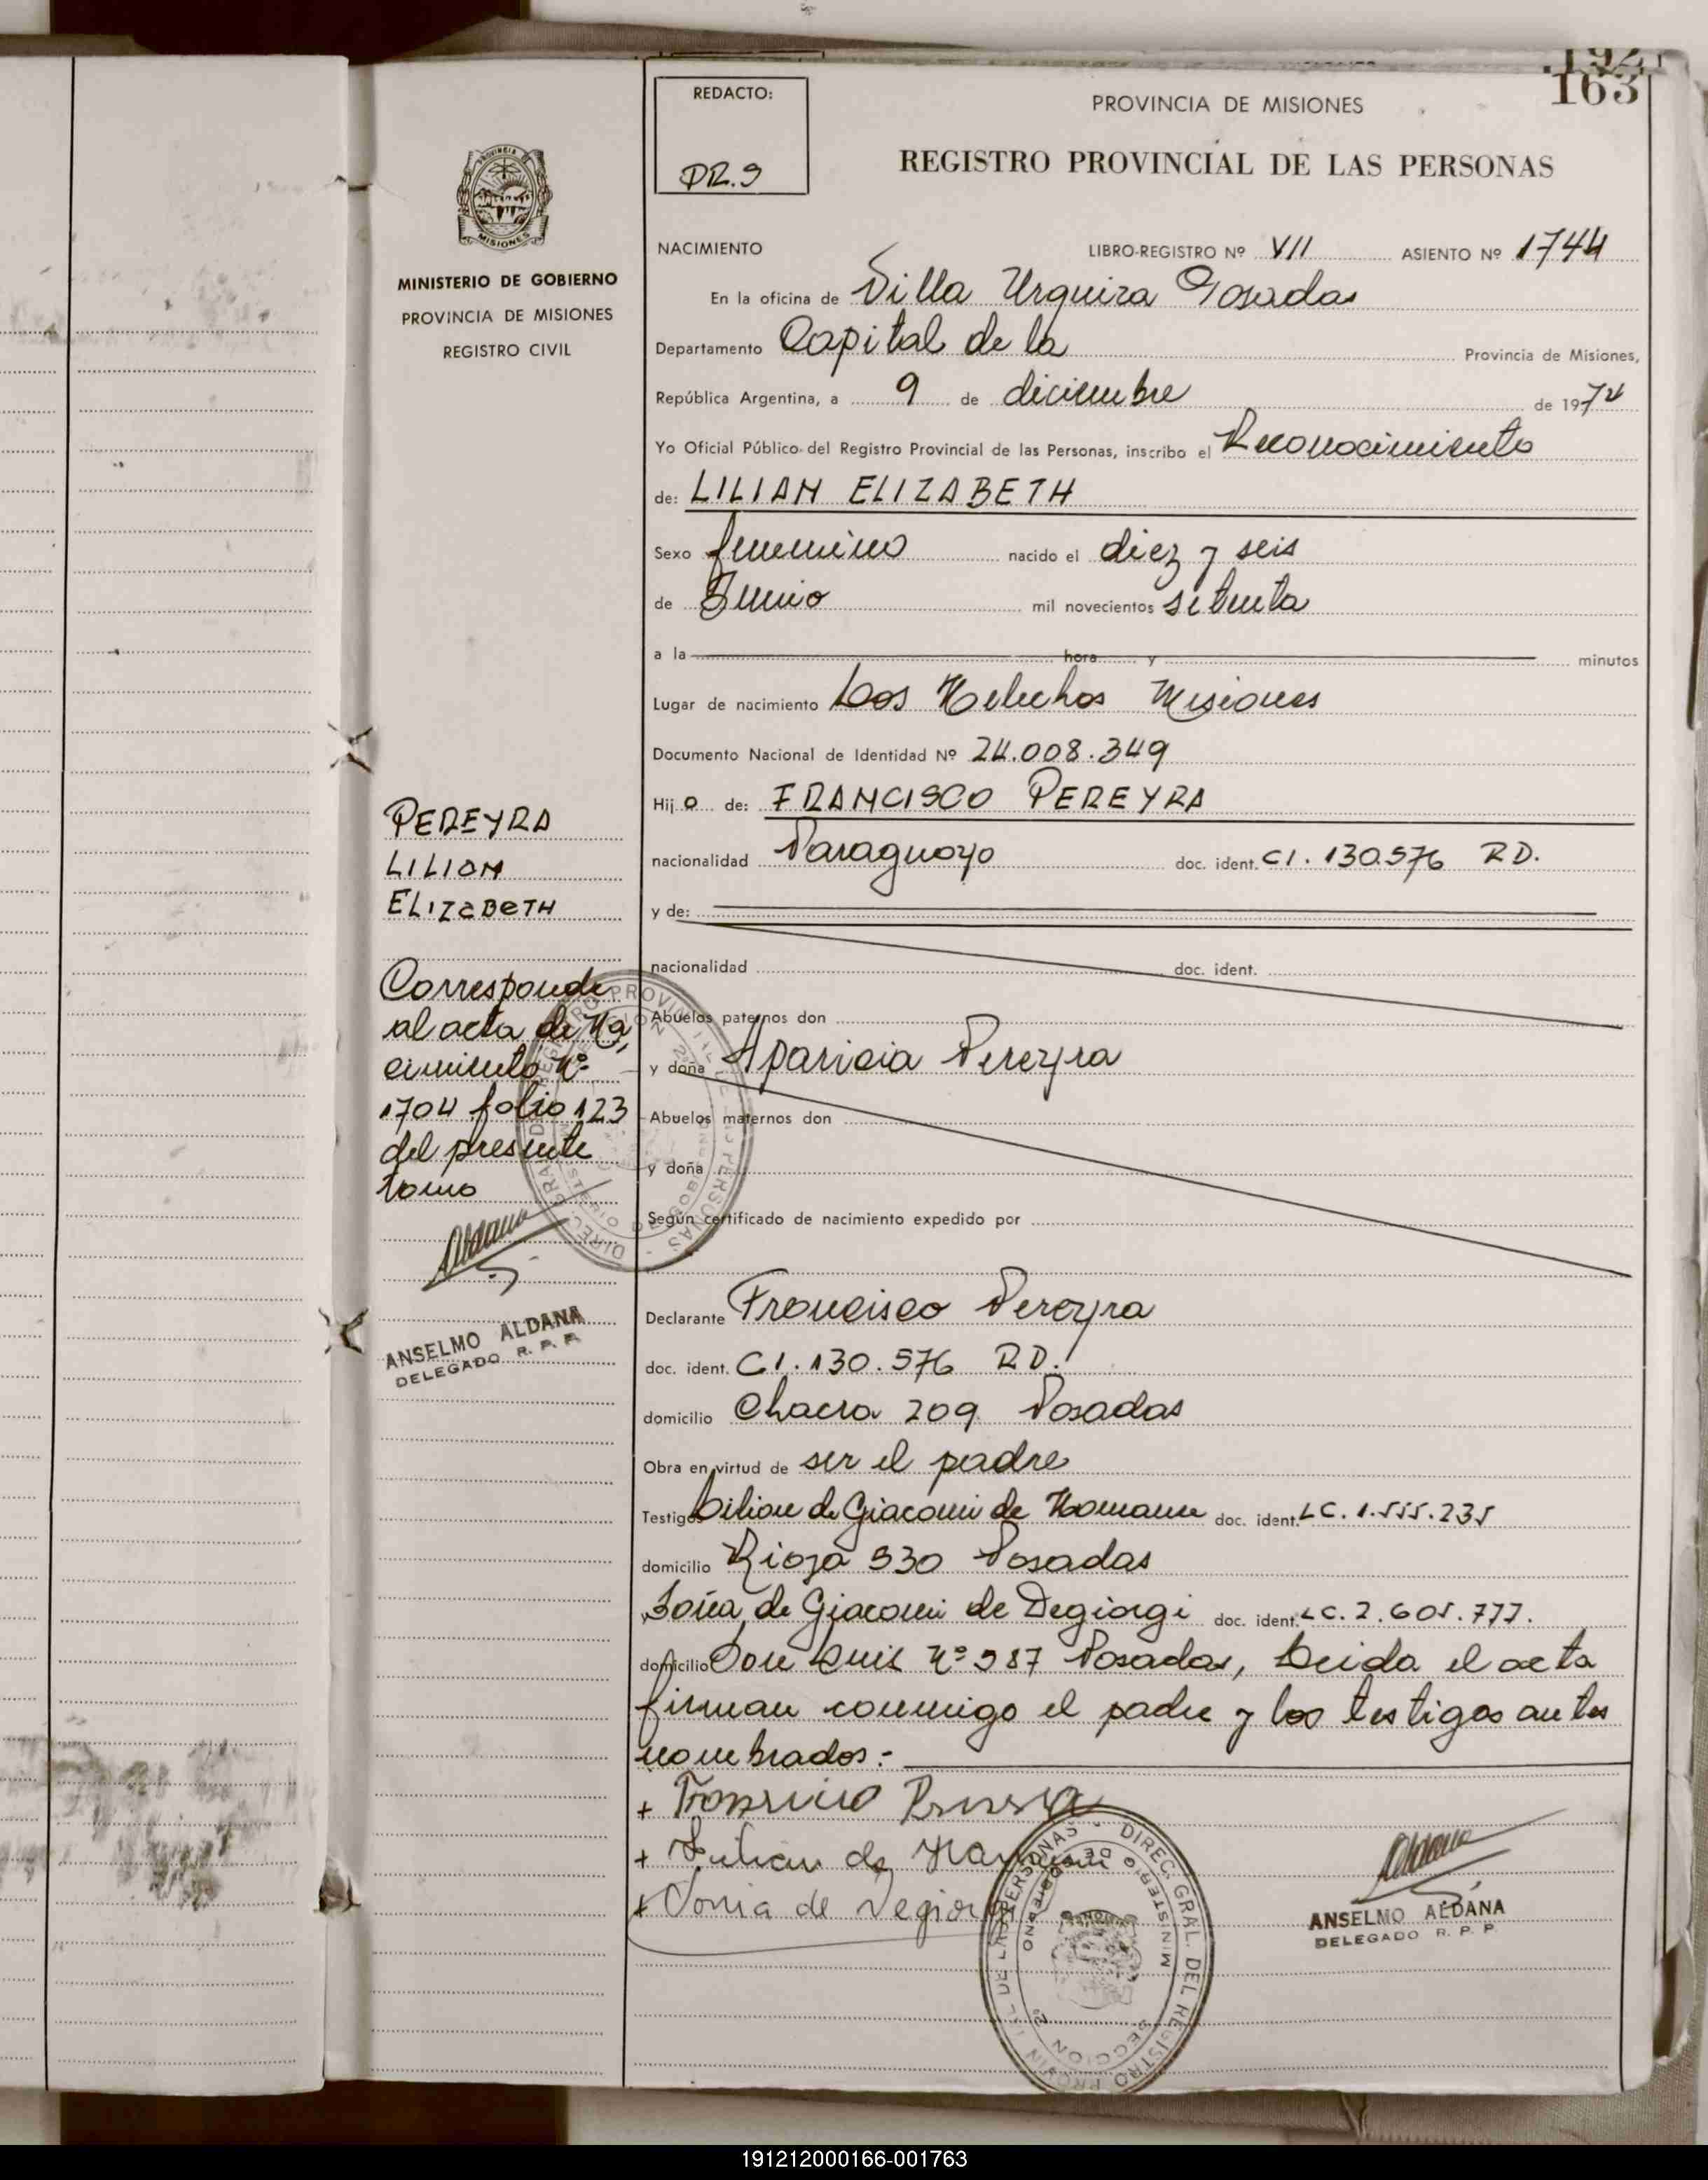 192
163
REDACTO:
DR.9
PROVINCIA DE MISIONES
REGISTRO PROVINCIAL DE LAS PERSONAS
MISIONES
MINISTERIO DE GOBIERNO
PROVINCIA DE MISIONES
REGISTRO CIVIL
NACIMIENTO LIBRO-REGISTRO Nº VII ASIENTO Nº 1744
En la oficina de Villa Urquiza Posadas
Departamento Capital de la Provincia de Misiones,
República Argentina, a 9 de diciembre de 1974
Yo Oficial Público del Registro Provincial de las Personas, inscribo el Reconocimiento
de: LILIAN ELIZABETH
Sexo femenino nacido el diez y seis
de Junio mil novecientos setenta
a la hora y minutos
Lugar de nacimiento Los Helechos Misiones
Documento Nacional de Identidad Nº 24.008.349
Hijo de: FRANCISCO PEREYRA
nacionalidad Paraguayo doc. ident. CI. 130.576 RD.
y de:
nacionalidad doc. ident.
Abuelos paternos don
y doña Aparicia Pereyra
Abuelos maternos don
y doña
Según certificado de nacimiento expedido por
Declarante Francisco Pereyra
doc. ident. CI. 130.576 RD.
domicilio Chacra 209 Posadas
Obra en virtud de ser el padre
Testigos Lilian de Giacomi de doc. ident. LC. 1.555.235
domicilio Rioja 930 Posadas
Sonia de Giacomi de Degiorgi doc. ident. LC. 2.605.777.
domicilio San Luis Nº 987 Posadas, Leida el acta
firman conmigo el padre y los testigos antes
nombrados:-
+ Francisco Pereyra
+ Lilian de
+ Sonia de Degiorgi
PEREYRA
LILIAN
ELIZABETH
Corresponde
al acta de Na
cimiento Nº
1704 folio 123
del presente
tomo
Aldana
ANSELMO ALDANA
DELEGADO R. P. P.
Aldana
ANSELMO ALDANA
DELEGADO R. P. P.
DIREC. GRAL. DEL REGISTRO PROVINCIAL DE LAS PERSONAS
MINISTERIO DE GOBIERNO
SECCION 2ª
191212000166-001763